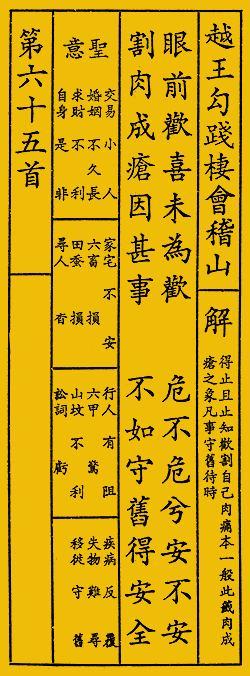 越王勾踐棲會稽山
解
得止且止知歡割自己肉痛本一般此籤肉成
瘡之象凡事守舊待時
眼前歡喜未為歡　危不危兮安不安
割肉成瘡因甚事　不如守舊得安全
聖意
交易　小人
婚姻　不久長
求財　不利
自身　是非
家宅　不安
六畜　損
田蚕　損
尋人　杳
行人　有阻
六甲　驚
山墳　不利
訟詞　虧
疾病　反覆
失物　難尋
移徙　守舊
第六十五首